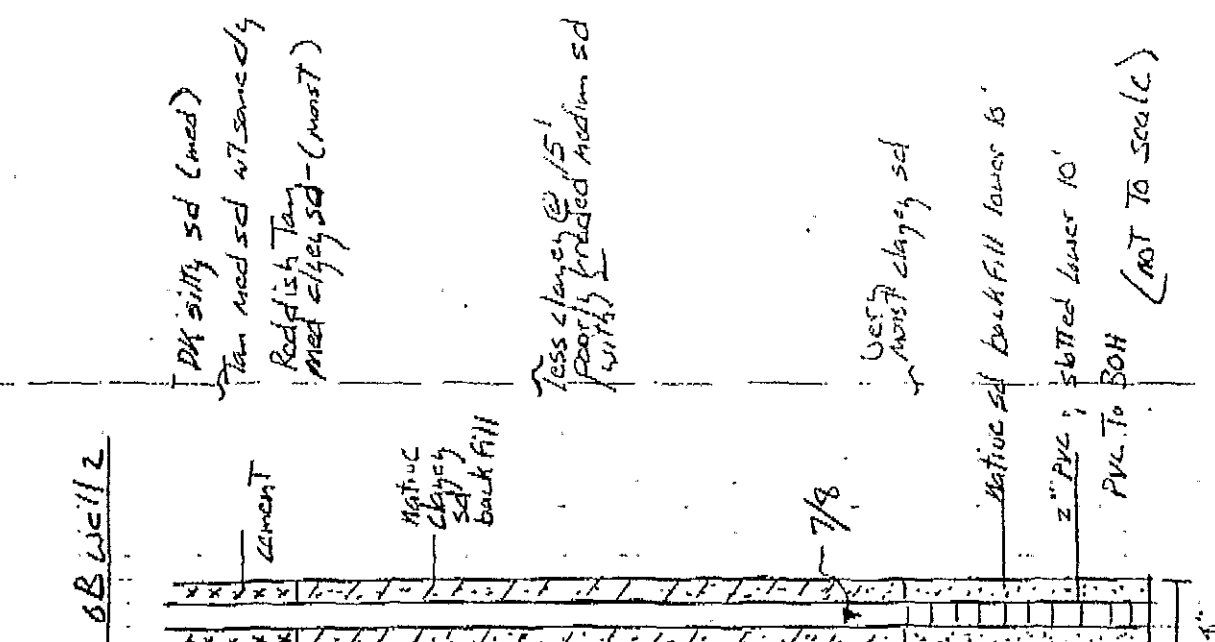 BB Well 2
cement
Native
clayey
sd
backfill
7/8
Native sd backfill lower 10'
2" PVC, slotted lower 10'
PVC To BOH
(NOT To scale)
DK silty sd (med)
Tan med sd w/ some cly
Reddish Tan
med clyey sd - (moist)
less clayey @ 15'
Poorly graded medium sd
with
Very
moist clayey sd